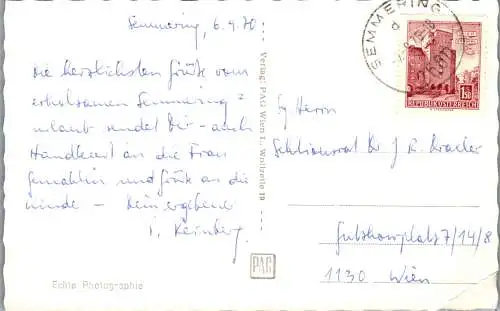 Semmering, 6.9.70
die herzlichsten Grüße vom
erholsamen Semmering-
urlaub sendet Dir - auch
Handkuss an die Frau
Gemahlin und Grüße an die
Kinder - Dein ergebener
Verlag: PAG Wien I., Wollzeile 19
PAG
Echte Photographie
SEMMERING
1.50
REPUBLIK ÖSTERREICH
Herrn
Sektionsrat Dr J.
7/14/8
1130 Wien